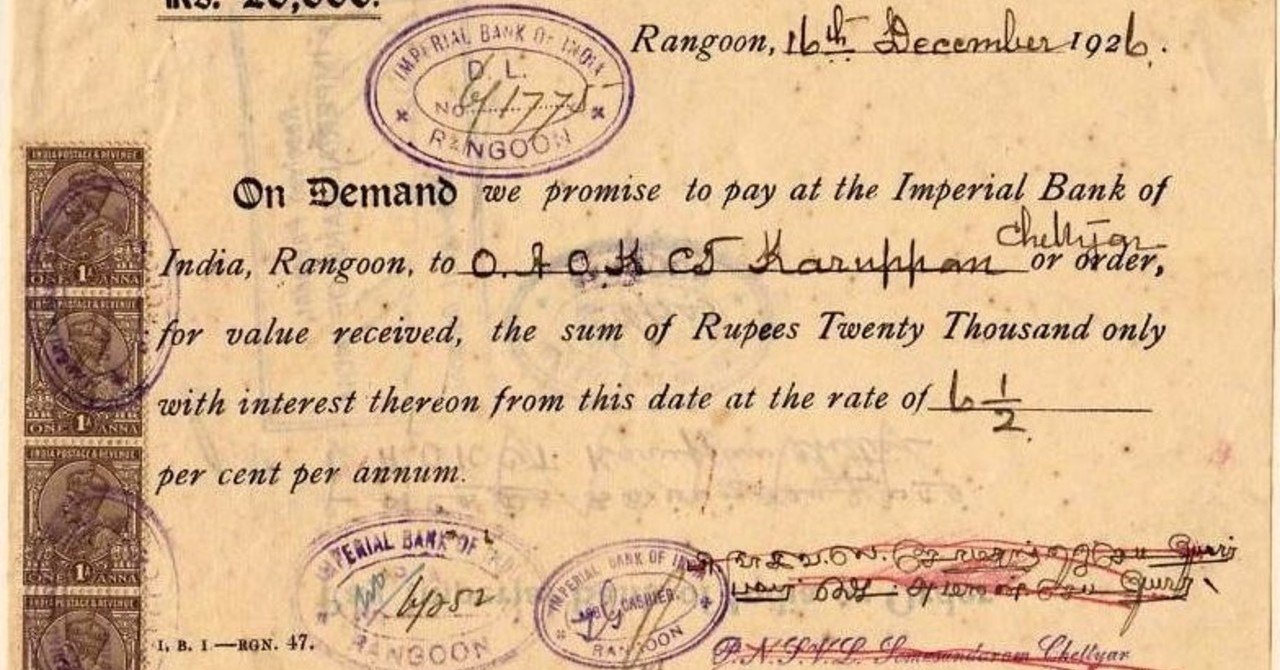 Rs. 20,000.
Rangoon, 16th December 1926.
IMPERIAL BANK OF INDIA
D. L.
NO. 6/1775
RANGOON
INDIA POSTAGE & REVENUE
1A
ONE ANNA
On Demand we promise to pay at the Imperial Bank of
Chettyar
India, Rangoon, to O. A O. K CT Karuppan or order,
1A
ONE ANNA
for value received, the sum of Rupees Twenty Thousand only
with interest thereon from this date at the rate of 6 1/2
per cent per annum.
INDIA POSTAGE & REVENUE
1A
ONE ANNA
INDIA POSTAGE & REVENUE
IMPERIAL BANK OF
6/252
RANGOON
IMPERIAL BANK OF INDIA
CASHIER
RANGOON
I. B. I.—RGN. 47.
P. N. S. V. L. Somasundaram Chettyar